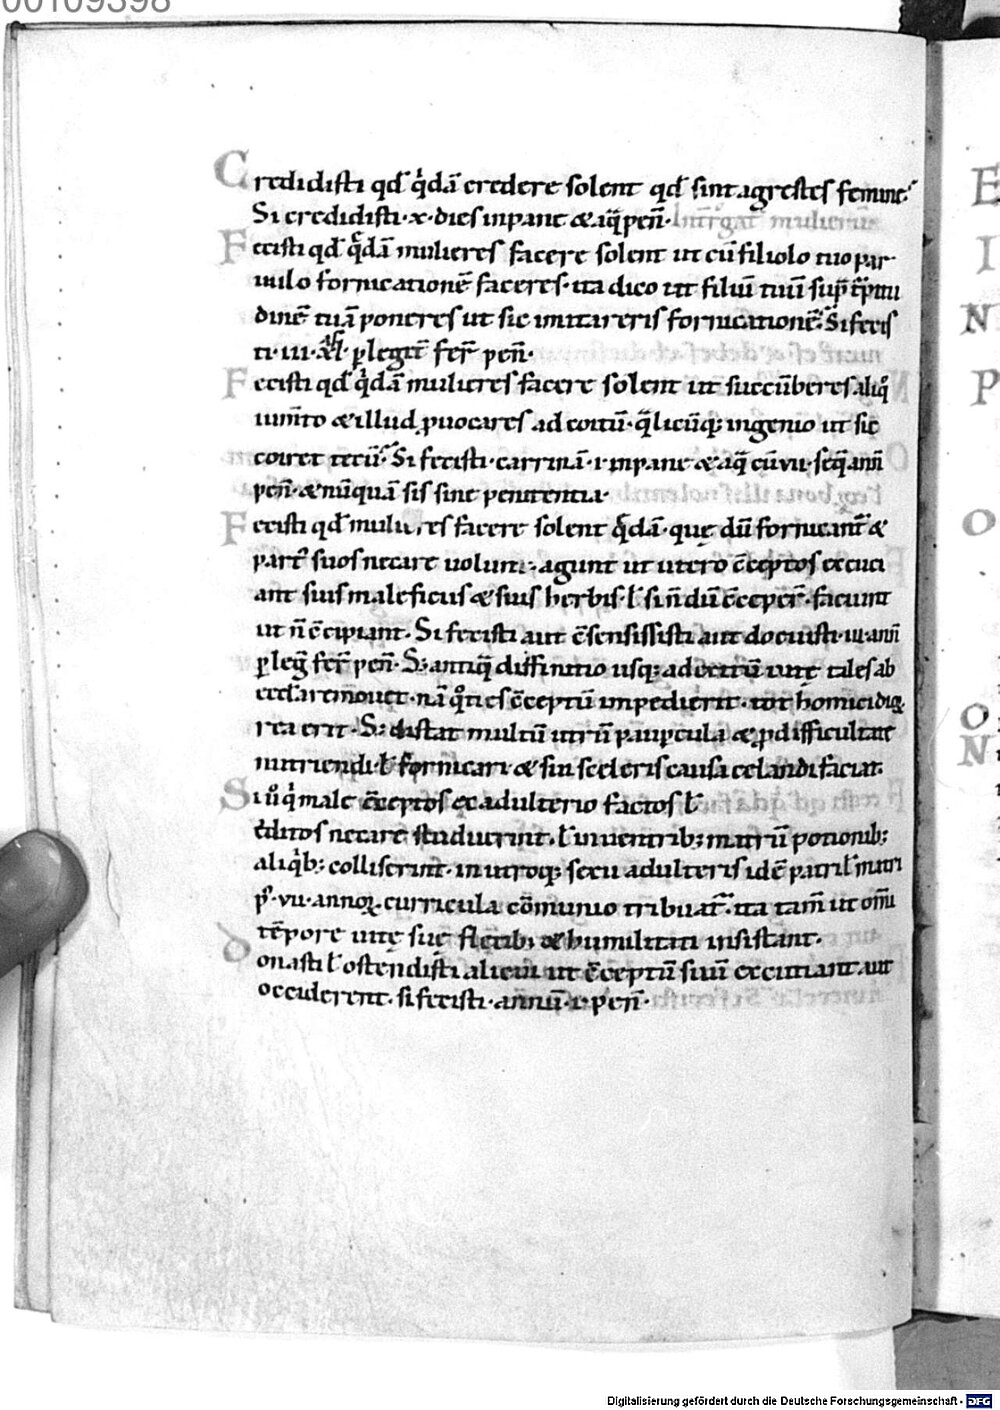 00109398
Credidisti qd̄ q̇dā credere solent qd̄ sint agrestes femine.
Si credidisti·x·dies in pane & aq̄ pen̄· Int̄rogat̄ mulierum
Fecisti qd̄ q̄dā mulieres facere solent ut cū filiolo tuo par
uulo fornicationē faceres·ita dico ut filiū tuū sup̄ t̄pitu
dinē tuā poneres ut sic imitareris fornicationē. Si fecis
ti·iii· p̱legit̄ fer̄ pen̄·
Fecisti qd̄ q̄dā mulieres facere solent ut succūberes aliq̊
ium̄to & illud ꝓuocares ad coitū·q̄licūq; ingenio ut sic
coiret tecū. Si fecisti·carrinā·i·in pane & aq̄ cū vii·seq̄ ann̄
pen̄·& nūquā sis sine penitentia·
Fecisti qd̄ mulieres facere solent q̄dā·quę dū fornicant̄ &
part᷒ suos necare uolunt·agunt ut utero c̄ceptos excuci
ant suis maleficiis & suis herbis·ł si n̄dū c̄ceper̄·faciunt
ut n̄ c̄cipiant· Si fecisti aut c̄sensisti aut docuisti·iii·ann̄
p̱ leḡ fer̄ pen̄· S; antiq̄ diffinitio usq; ad exitū uitę tales ab
eccła remouet·nā q̊ties c̄ceptū impedierit·tot homicidioꝝ
rea erit· S; distat multū utrū paup̱cula & ꝓ difficultate
nutriendi·ł fornicari & sui sceleris causa celandi faciat.
Si ů q̇ male c̄ceptos ex adulterio factos ł
ēditos necare studuerint·ł in uentrib; matrū potionib;
aliq̇b; colliserint·in utroq; sexu adulteris idē patri ł matri
p᷒·vii·annoꝝ·curricula cōmunio tribuat̄·ita tam̄ ut om̄i
tēpore uitę suę fletib; & humilitati insistant·
Donasti ł ostendisti alicui ut c̄ceptū suū excutiant aut
occiderent·si fecisti·annū·i·pen̄·
E
I
N
P
O
O
N
Digitalisierung gefördert durch die Deutsche Forschungsgemeinschaft - DFG